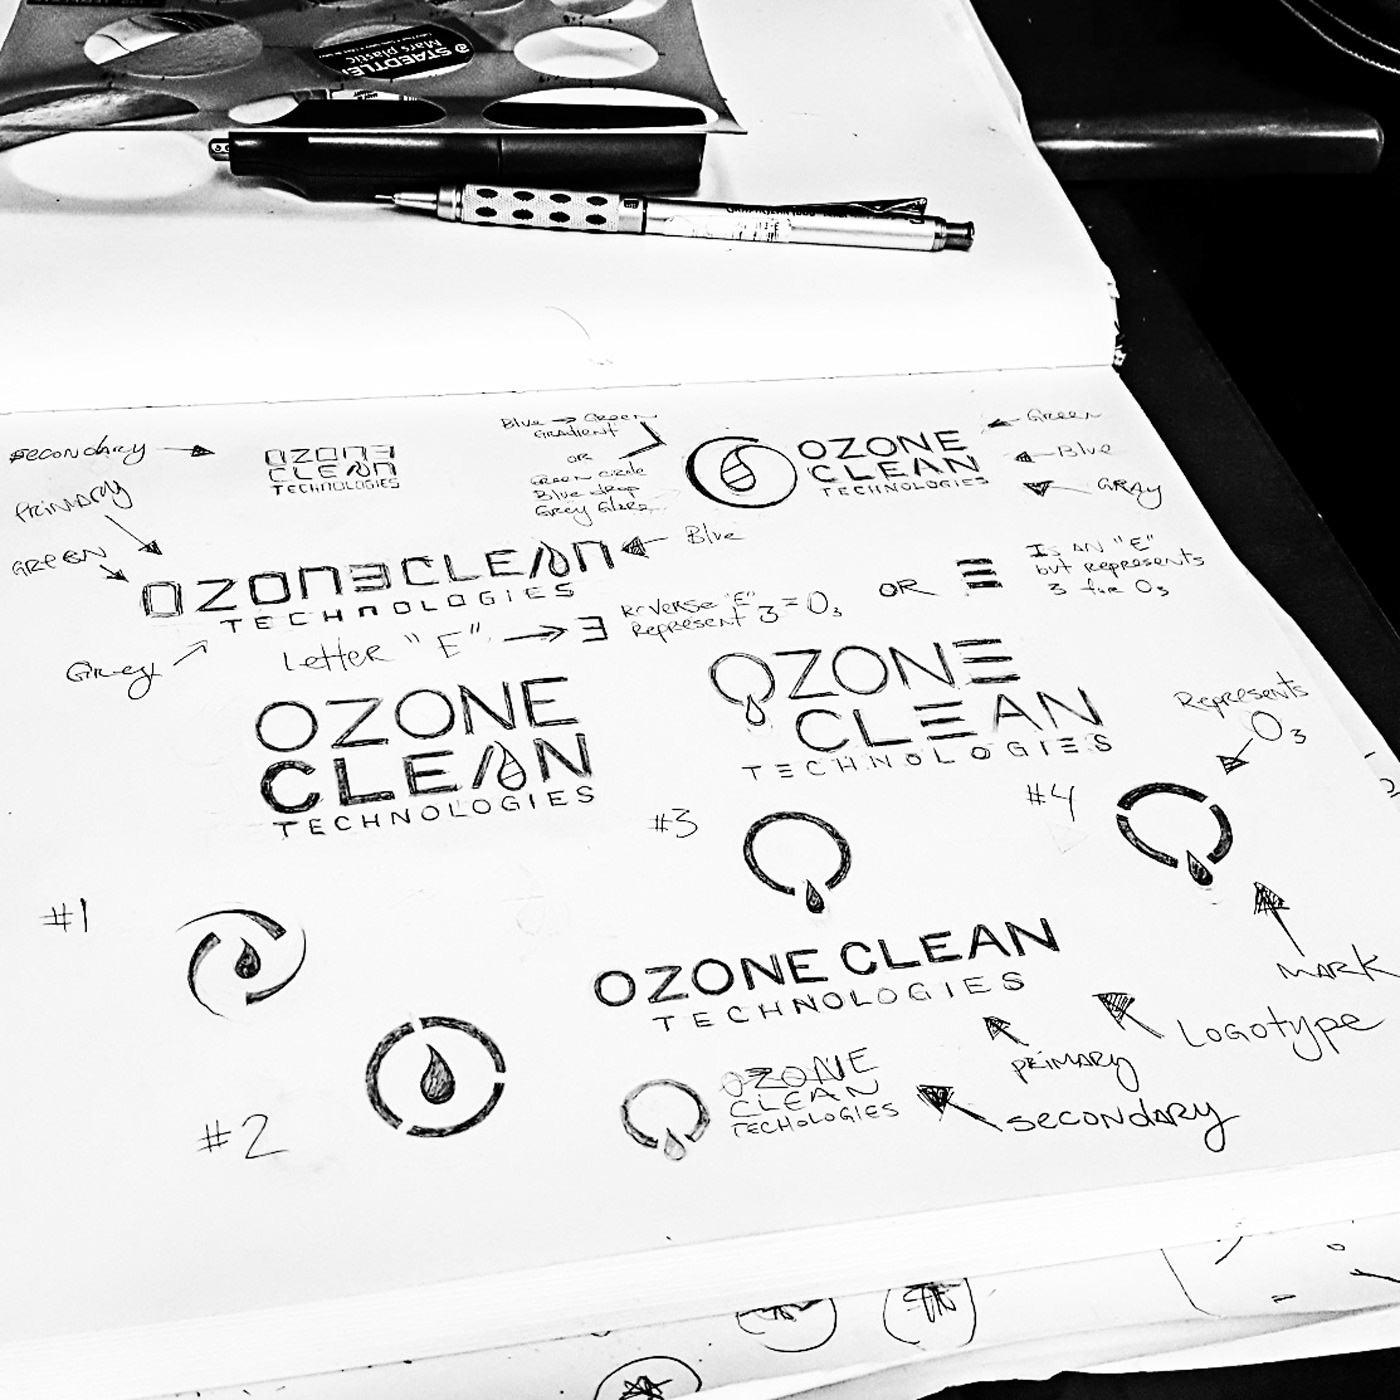 STAEDTLER
Mars plastic
Secondary
PRIMARY
GREEN
OZONE
CLEAN
TECHNOLOGIES
Blue → Green
GRADIENT
OR
Green circle
Blue drop
Grey Glare
OZONE
CLEAN
TECHNOLOGIES
Green
Blue
GRAY
OZONƎCLEAN
TECHNOLOGIES
Blue
Grey
Letter "E" → Ǝ
Reverse "E"
Represent 3 = O₃
OR
Is AN "E"
but represents
3 for O₃
OZONE
CLEAN
TECHNOLOGIES
OZONE
CLEAN
TECHNOLOGIES
Represents
O₃
#3
#4
#1
#2
MARK
OZONE CLEAN
TECHNOLOGIES
Logotype
PRIMARY
OZONE
CLEAN
TECHOLOGIES
Secondary